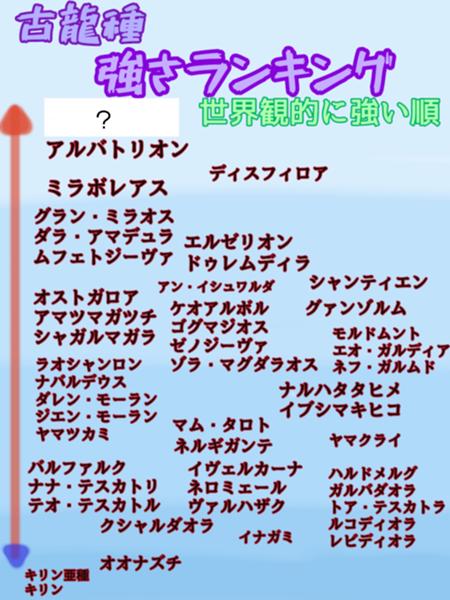 古龍種
強さランキング
世界観的に強い順
?
アルバトリオン
ディスフィロア
ミラボレアス
グラン・ミラオス
ダラ・アマデュラ
エルゼリオン
ムフェトジーヴァ
ドゥレムディラ
アン・イシュワルダ
シャンティエン
オストガロア
ケオアルボル
グァンゾルム
アマツマガツチ
ゴグマジオス
モルドムント
シャガルマガラ
ゼノジーヴァ
エオ・ガルディア
ラオシャンロン
ゾラ・マグダラオス
ネフ・ガルムド
ナバルデウス
ナルハタタヒメ
ダレン・モーラン
イブシマキヒコ
ジエン・モーラン
マム・タロト
ヤマツカミ
ネルギガンテ
ヤマクライ
バルファルク
イヴェルカーナ
ハルドメルグ
ナナ・テスカトリ
ネロミェール
ガルバダオラ
テオ・テスカトル
ヴァルハザク
トア・テスカトラ
クシャルダオラ
イナガミ
ルコディオラ
レビディオラ
オオナズチ
キリン亜種
キリン